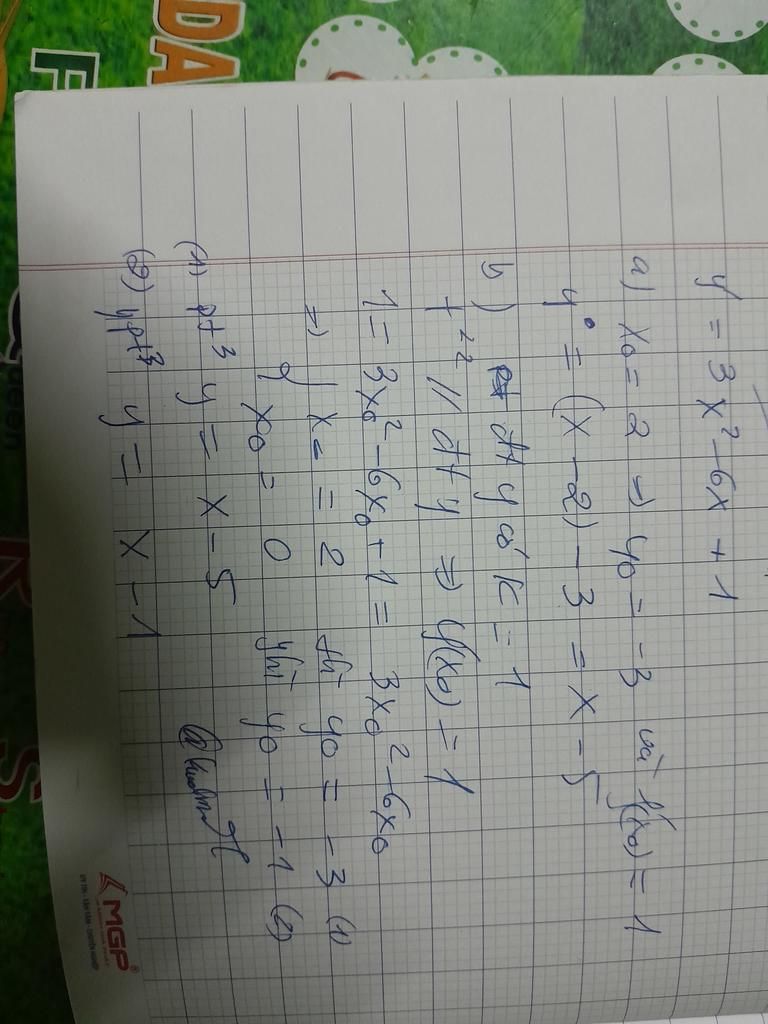 y' = 3x² - 6x + 1
a) x₀ = 2 => y₀ = -3 và y'(x₀) = 1
y = (x - 2) - 3 = x - 5
b) dt y có k = 1
t² // dt y => y'(x₀) = 1
1 = 3x₀² - 6x₀ + 1 = 3x₀² - 6x₀
=> x₀ = 2 thì y₀ = -3 (1)
x₀ = 0 thì y₀ = -1 (2)
(1) pt³ y = x - 5
(2) pt³ y = x - 1
MGP
DA
F